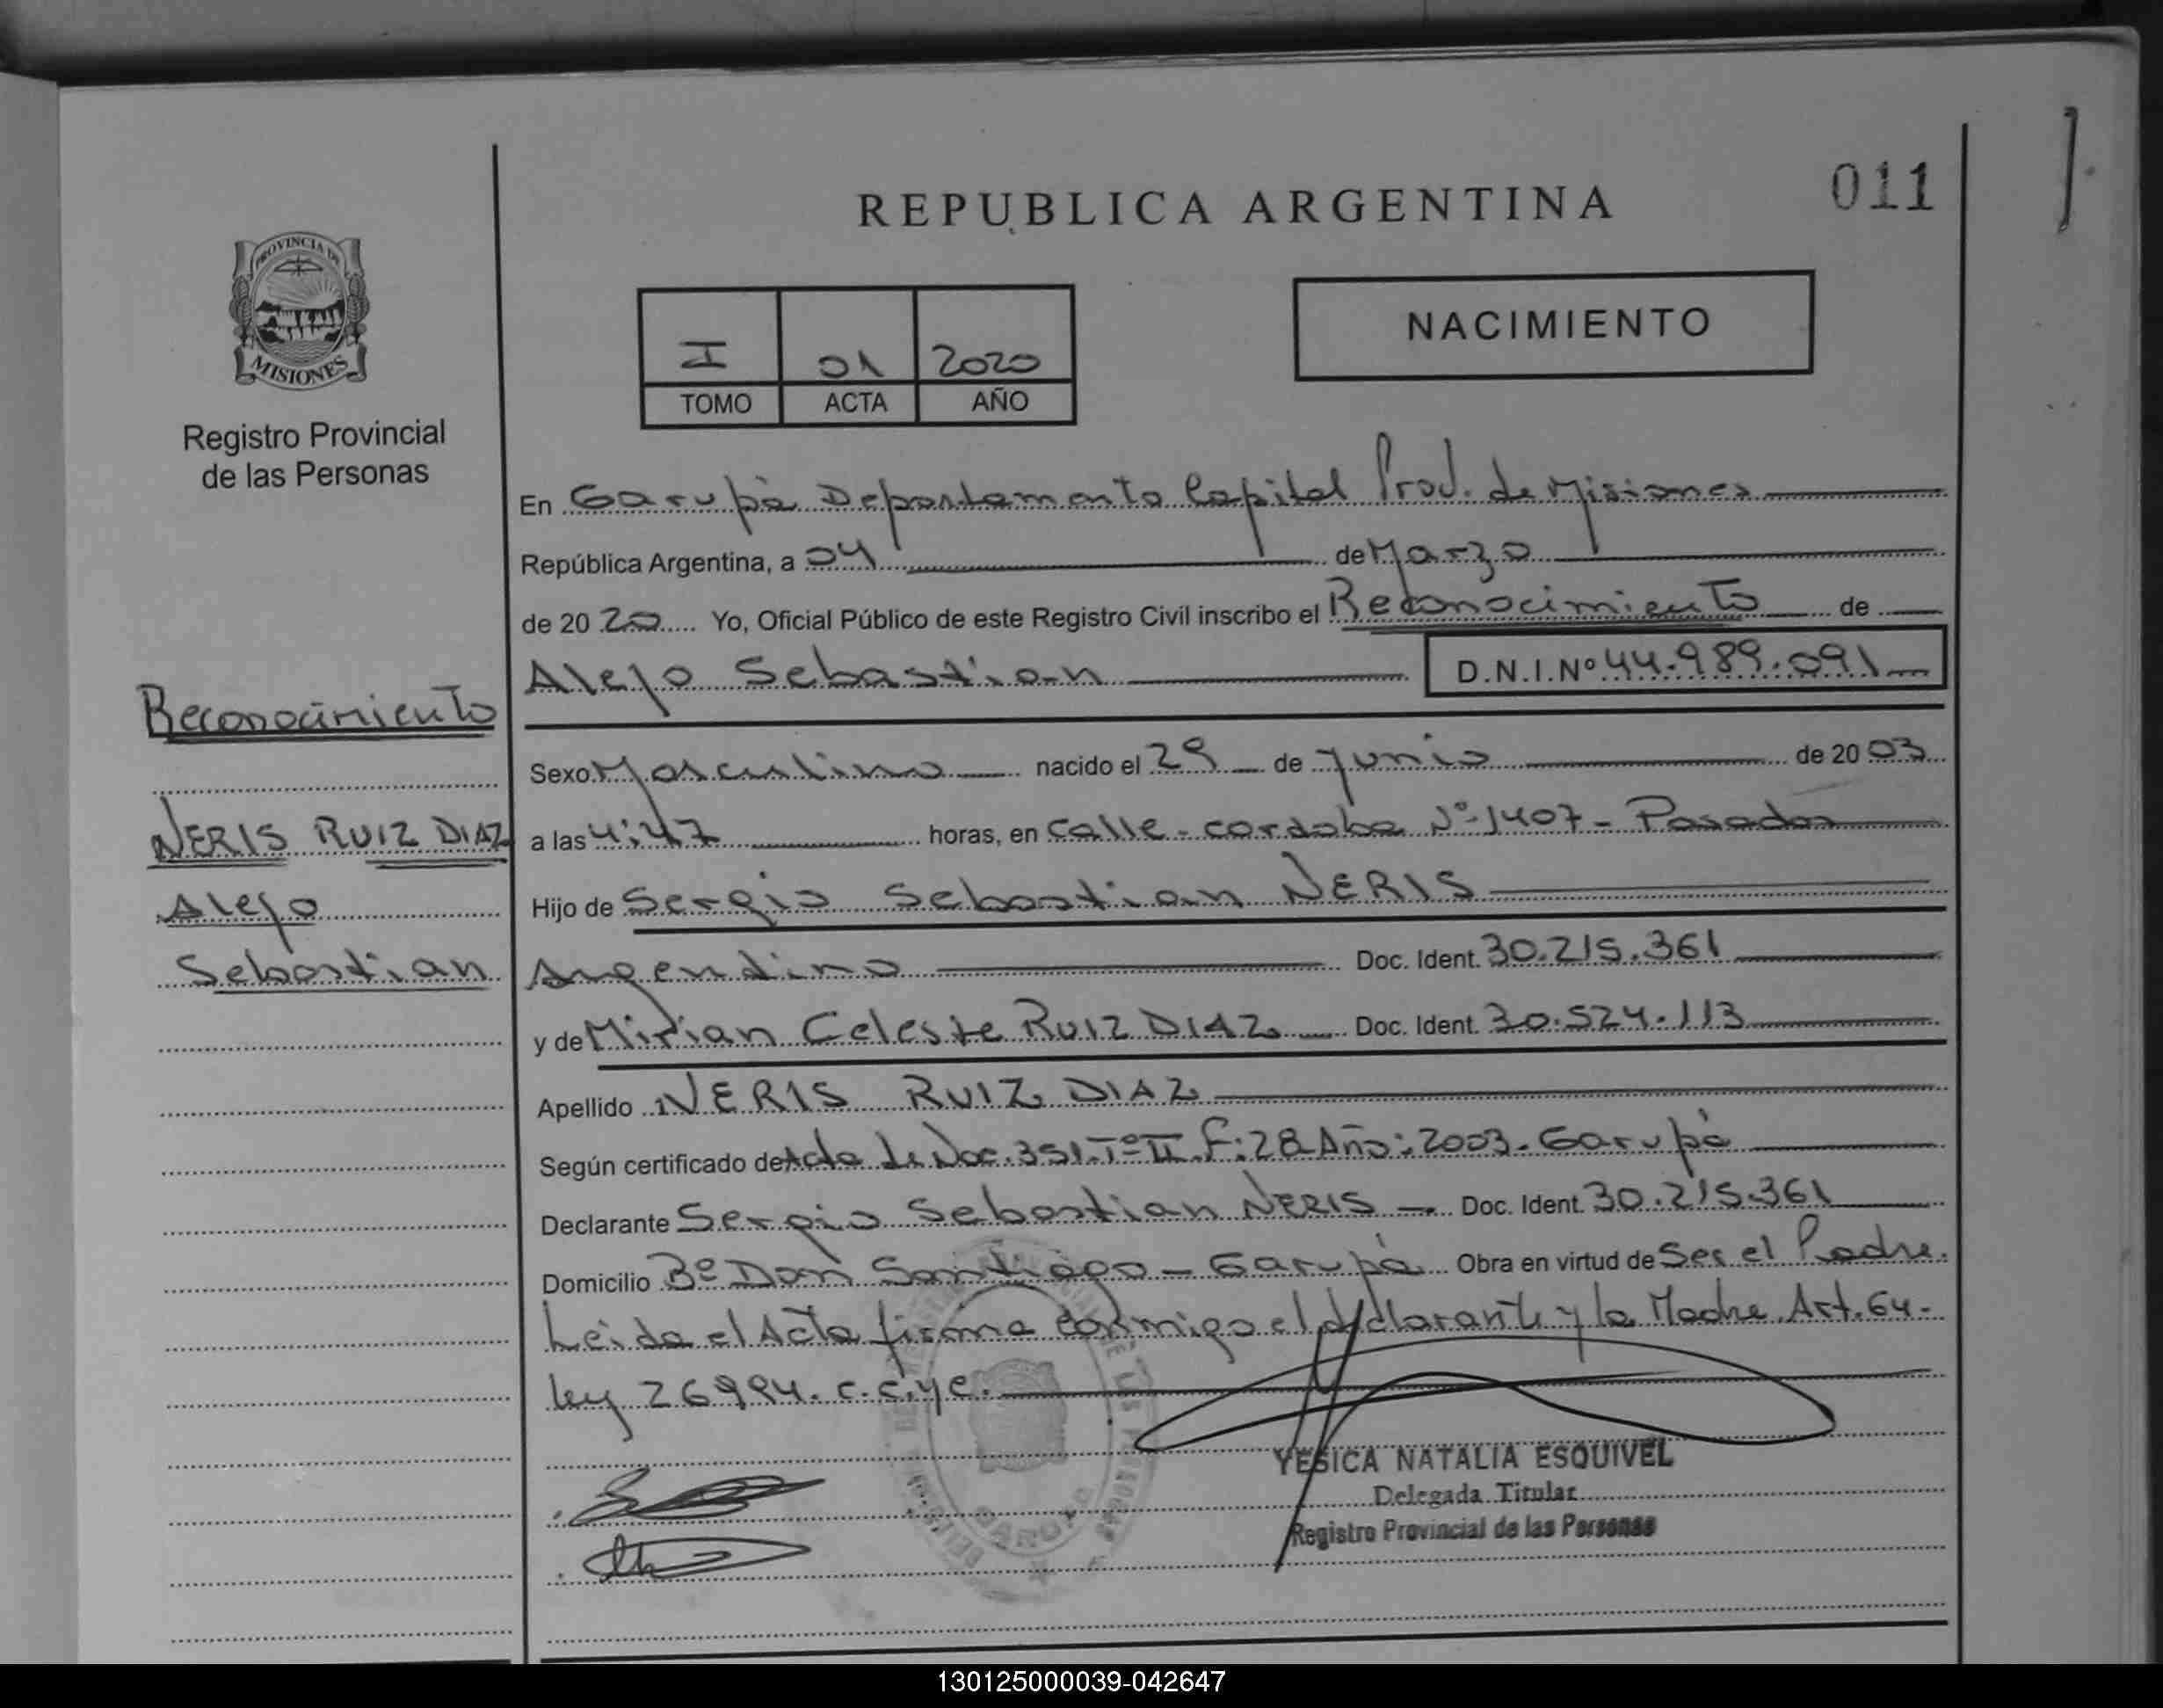 REPUBLICA ARGENTINA
011
PROVINCIA DE
MISIONES
Registro Provincial
de las Personas
I 01 2020
TOMO ACTA AÑO
NACIMIENTO
En Garupà Departamento Capital Prov. de Misiones
República Argentina, a 04 de Marzo
de 20 20 Yo, Oficial Público de este Registro Civil inscribo el Reconocimiento de
Alejo Sebastian D.N.I.Nº 44.989.091
Reconocimiento
NERIS RUIZ DIAZ
Alejo
Sebastian
Sexo Masculino nacido el 29 de Junio de 20 03
a las 4:47 horas, en Calle - cordoba Nº 1407 - Posadas
Hijo de Sergio Sebastian NERIS
Argentino Doc. Ident. 30.215.361
y de Mirian Celeste RUIZ DIAZ Doc. Ident. 30.524.113
Apellido NERIS RUIZ DIAZ
Según certificado de Acta de Nac. 351. Tº II. F: 28 Año: 2003 - Garupà
Declarante Sergio Sebastian NERIS Doc. Ident. 30.215.361
Domicilio Bº Don Santiago - Garupà Obra en virtud de Ser el Padre.
Leida el Acta firma conmigo el declarante y la Madre. Art. 64 -
ley 26994. c.c.y c.
YESICA NATALIA ESQUIVEL
Delegada Titular
Registro Provincial de las Personas
GARUPA
130125000039-042647